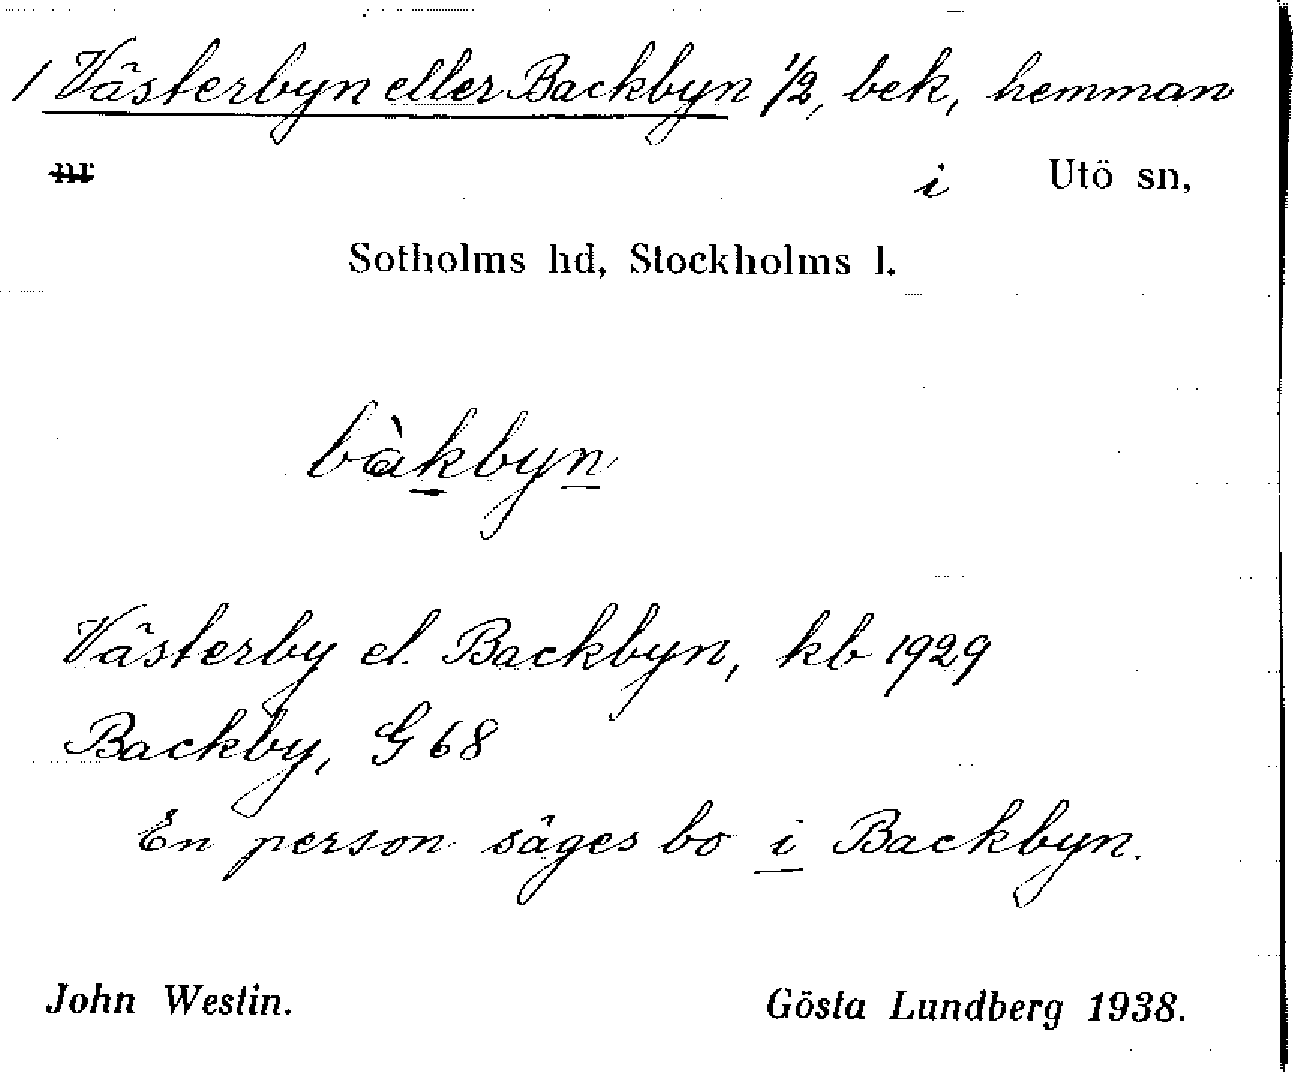 / Västerbyn eller Backbyn 1/2, bek, hemman
nr i Utö sn,
Sotholms hd, Stockholms l.
bàkbyn
Västerby el. Backbyn, kb 1929
Backby, G 68
En person säges bo i Backbyn.
John Westin. Gösta Lundberg 1938.